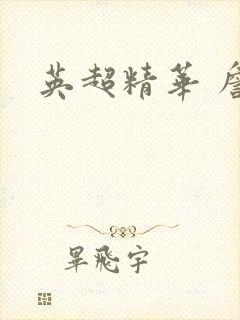 英超精華
畢飛宇